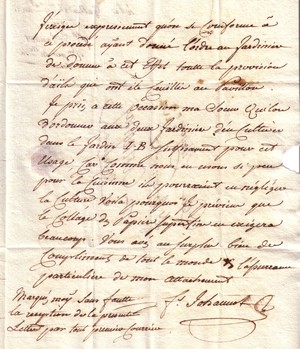 J'exige expressement quon se Conforme à
ce procédé ayant Donné l'ordre au Jardinier
de Donner à cet Effet toute la provision
d'ails qui ont été Cueillie au Pavillon.
Je prie, a cette occasion ma Soeur Quil on
aux deux Jardinier d'en Cultiver
dans le Jardin J.B. suffisament pour cet
Usage Car Comme nous en avons si peu
pour la Cuisine Ils pourraient en négliger
la Culture Voila pourquoi je previens que
le Collage du Papier Superfin en exigera
beaucoup. Vous avez au surplus bien de
Complimens de tout le monde & l'assurance
particulière de mon attachement
Marquez moy Sans faute
la réception de la présente
Lettre par tout premier Courrier
f. Johannot